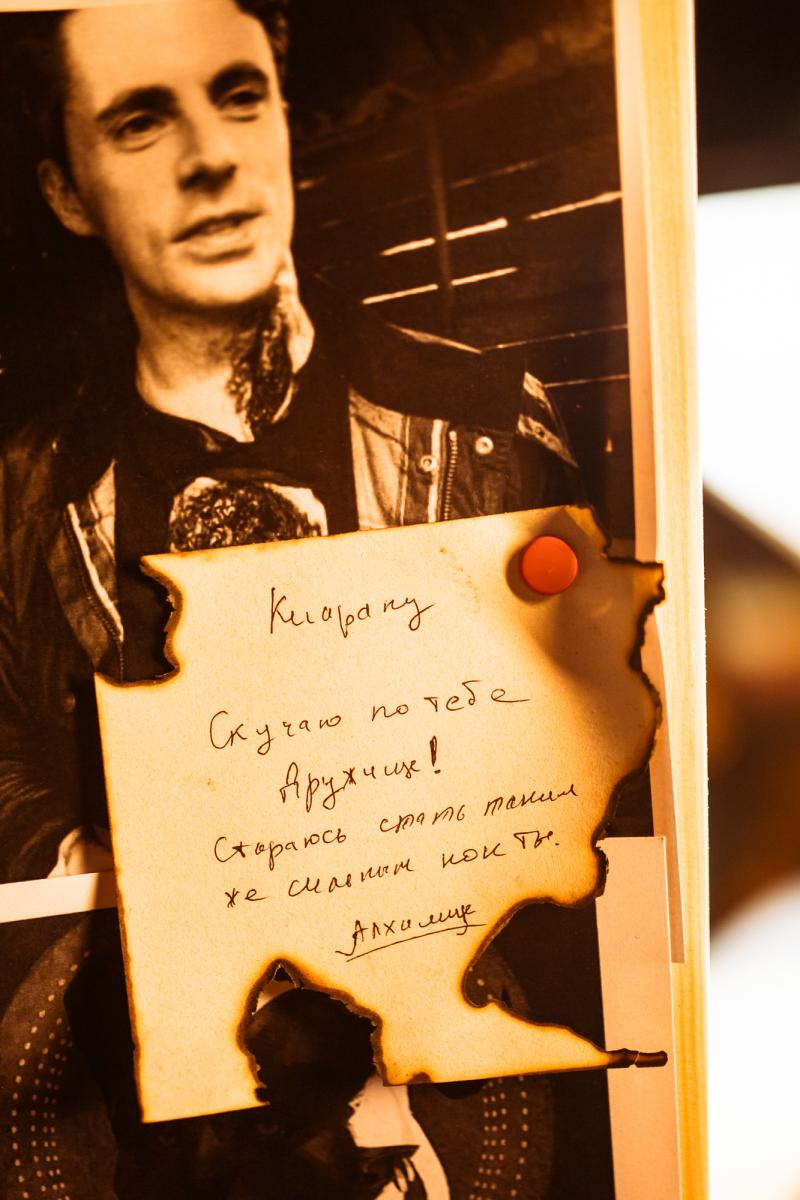 Киарану
Скучаю по тебе
дружище!
Стараюсь стать таким
же смелым как ты.
Алхимик